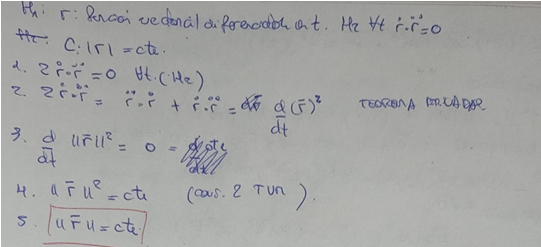 H₁: r: función vectorial diferenciable en t. H₂ ∀t ṙ·r̈=0
C: |r| = cte.
1. 2 ṙ·r̈ = 0 ∀t. (H₂)
2. 2 ṙ·r̈ = r̈·ṙ + ṙ·r̈ = d/dt (r̄)² TEOREMA
3. d/dt ||r̄||² = 0 =
4. ||r̄||² = cte (cons. 2 TVM).
5. ||r̄|| = cte.